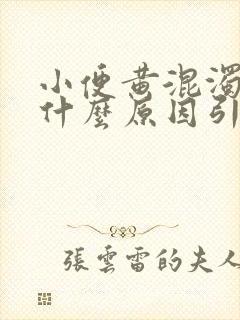 小便黄混濁
什麼原因引
張雲雷的夫人